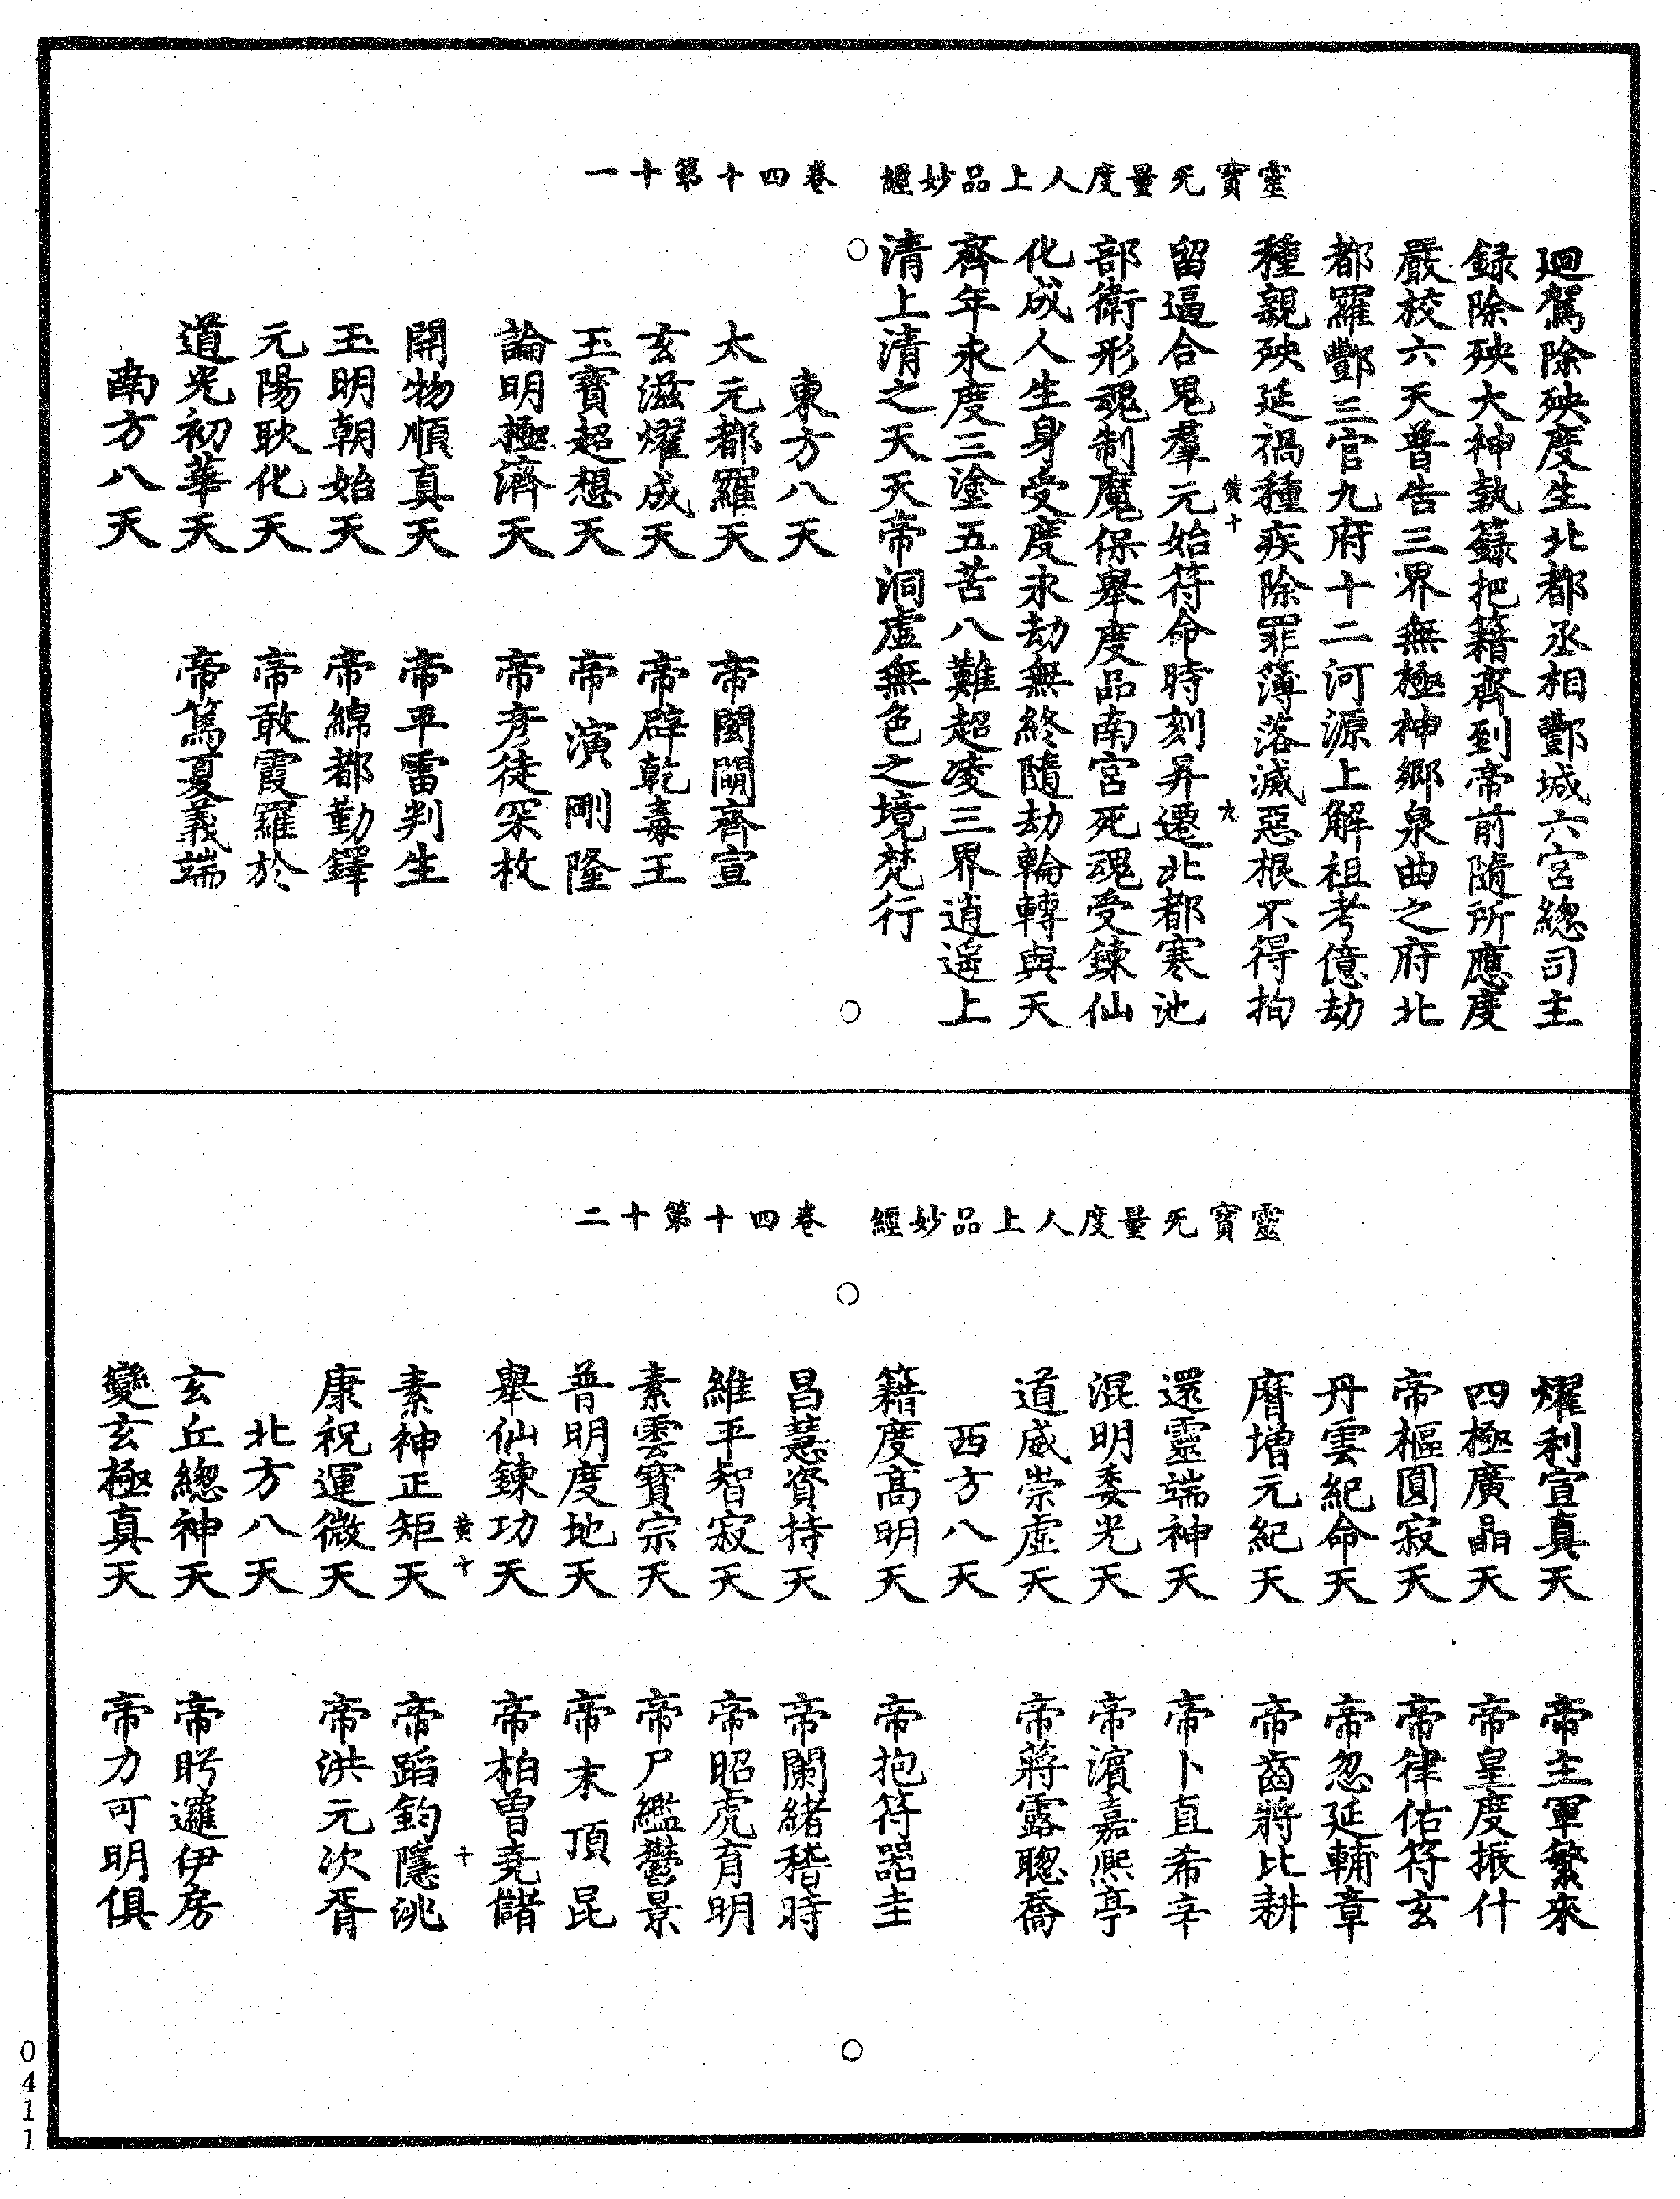 靈寶无量度人上品妙經　卷四十第十一
廻駕除殃度生北都丞相酆城六宮總司主
録除殃大神執籙把籍齊到帝前隨所應度
嚴校六天普告三界無極神鄉泉曲之府北
都羅酆三官九府十二河源上解祖考億劫
種親殃延禍種疾除罪簿落滅惡根不得拘
黃十　九
留逼合鬼羣元始符命時刻昇遷北都寒池
部衛形魂制魔保舉度品南宮死魂受鍊仙
化成人生身受度永劫無終隨劫輪轉與天
齊年永度三塗五苦八難超凌三界逍遥上
清上清之天天帝洞虛無色之境梵行
東方八天
太元都羅天　帝閩闢齊宣
玄滋燿成天　帝辟乾毒王
玉寶超想天　帝演剛隆
論明極濟天　帝彥徒罙枚
開物順真天　帝平雷判生
玉明朝始天　帝綿都勤鐸
元陽耿化天　帝敢霞羅於
道光初華天　帝篤夏義端
南方八天
靈寶无量度人上品妙經　卷四十第十二
燿利宣真天　帝主軍繁來
四極廣晶天　帝皇度振什
帝樞圓寂天　帝律佑符玄
丹雲紀命天　帝忽延輔章
曆增元紀天　帝齒將比耕
還靈端神天　帝卜直希辛
混明委光天　帝濱嘉熙亭
道威崇虛天　帝蔣露聰喬
西方八天
籍度高明天　帝抱符器圭
昌慧資持天　帝闌緒稽時
維平智寂天　帝昭虎育明
素雲寶宗天　帝尸鑑鬱景
普明度地天　帝末頂昆
舉仙鍊功天　帝柏曾堯儲
黃十　十
素神正矩天　帝蹈鈞隱洮
康祝運微天　帝洪元次胥
北方八天
玄丘總神天　帝盻邏伊房
變玄極真天　帝力可明俱
0411